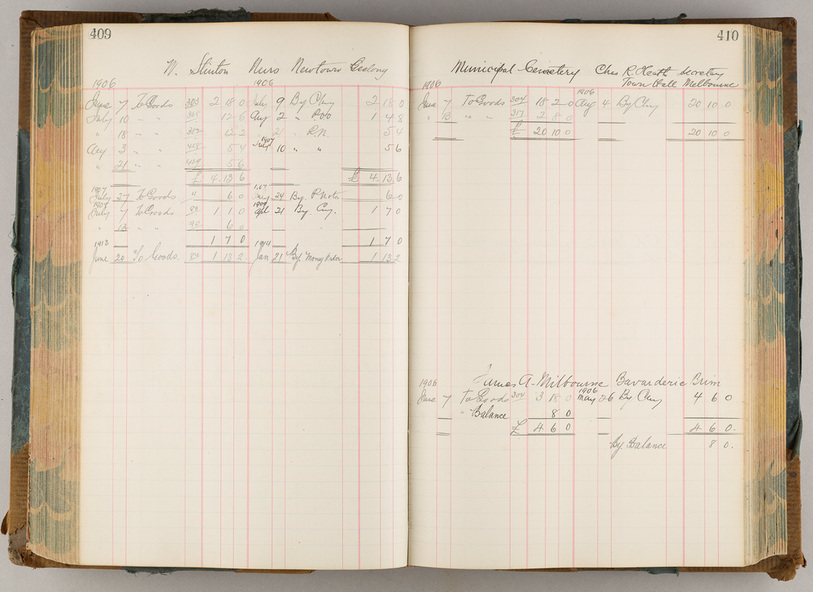 409
W. Stinton Nurs Newtown Geelong
1906 1906
June 7 To Goods 303 2 18 0 July 9 By Chq 2 18 0
July 10 " " 12 6 Aug 2 " 1 4 8
" 18 " " 12 2 " 2 " P.N. 5 4
Aug 3 " " 5 4 10 " " 5 6
" 21 " " 5 6
£ 4 13 6 £ 4 13 6
1907 1907
July 27 To Goods 6 0 24 By P Note 6 0
July 7 To Goods 1 1 0 21 By Chq. 1 7 0
" 13 " " 6 0
1 7 0 1 7 0
June 20 To Goods. 1 13 2 Jan 21 By Money Order 1 13 2
410
Municipal Cemetery Chas R. Heath Secretary
Town Hall Melbourne
1906 1906
June 7 To Goods 304 18 2 0 Aug 4 By Chq 20 10 0
" 13 " " 2 8 0
£ 20 10 0 20 10 0
James A. Milbourne Bavarderie Brim
1906 1906
June 7 To Goods 304 3 18 0 May 26 By Chq 4 6 0
" Balance 8 0
£ 4 6 0 4 6 0.
By Balance 8 0.